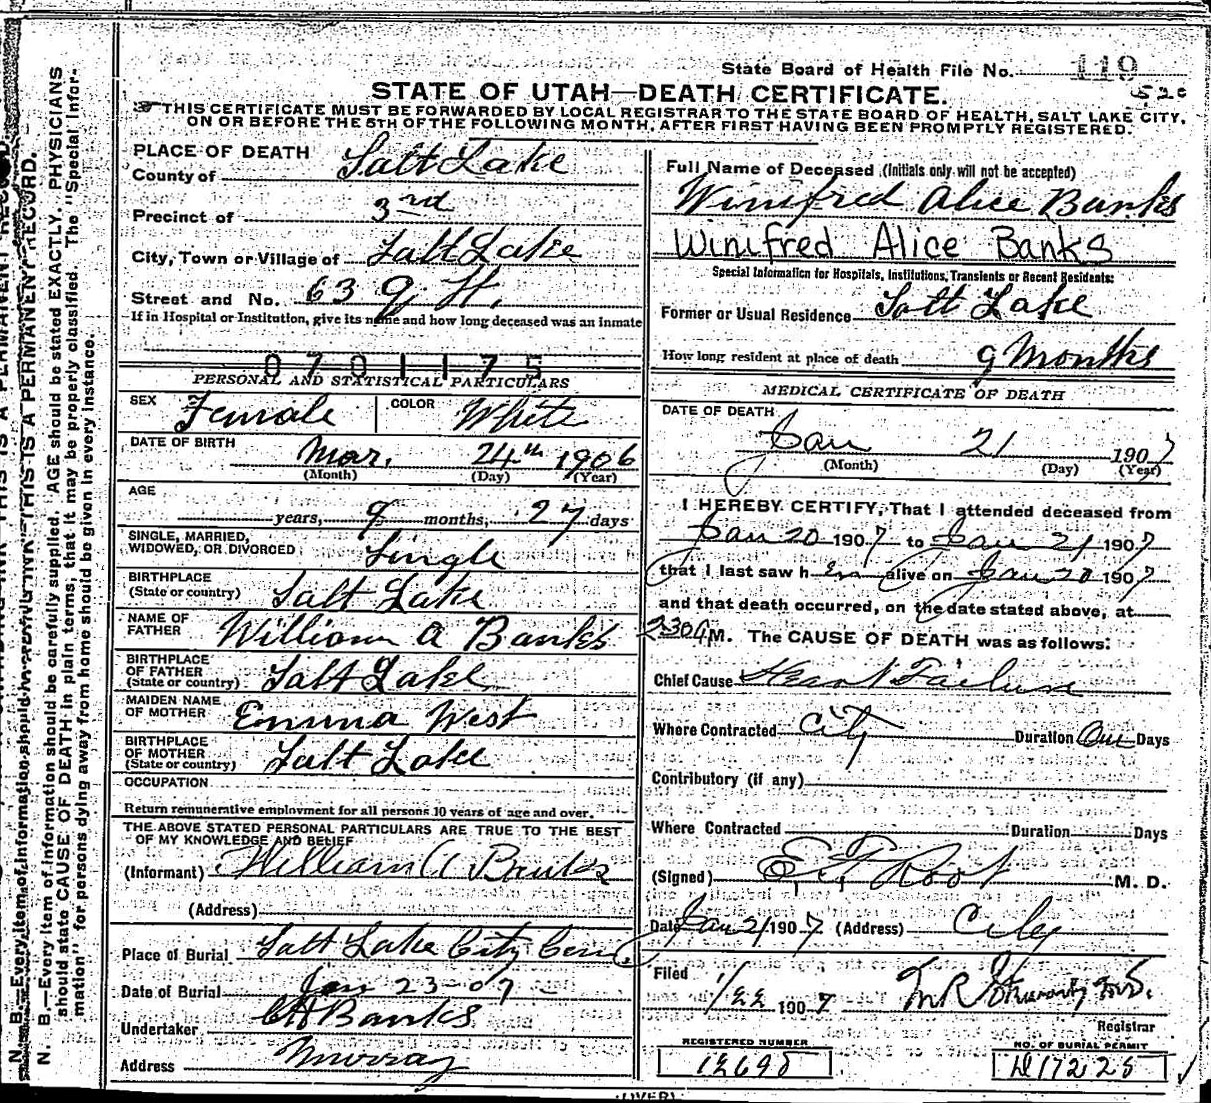 State Board of Health File No. 119
520
STATE OF UTAH—DEATH CERTIFICATE.
THIS CERTIFICATE MUST BE FORWARDED BY LOCAL REGISTRAR TO THE STATE BOARD OF HEALTH, SALT LAKE CITY,
ON OR BEFORE THE 5TH OF THE FOLLOWING MONTH, AFTER FIRST HAVING BEEN PROMPTLY REGISTERED.
N. B.—Every item of information should be carefully supplied. AGE should be stated EXACTLY. PHYSICIANS
should state CAUSE OF DEATH in plain terms, that it may be properly classified. The "Special Infor-
mation" for persons dying away from home should be given in every instance.
PLACE OF DEATH
County of Salt Lake
Precinct of 3rd
City, Town or Village of Salt Lake
Street and No. 63 Q St.
If in Hospital or Institution, give its name and how long deceased was an inmate
0701175
PERSONAL AND STATISTICAL PARTICULARS
SEX Female COLOR White
DATE OF BIRTH Mar. 24th 1906
(Month) (Day) (Year)
AGE
years, 9 months, 27 days
SINGLE, MARRIED,
WIDOWED, OR DIVORCED Single
BIRTHPLACE
(State or country) Salt Lake
NAME OF
FATHER William A Banks
BIRTHPLACE
OF FATHER
(State or country) Salt Lake
MAIDEN NAME
OF MOTHER Emma West
BIRTHPLACE
OF MOTHER
(State or country) Salt Lake
OCCUPATION
Return remunerative employment for all persons 10 years of age and over.
THE ABOVE STATED PERSONAL PARTICULARS ARE TRUE TO THE BEST
OF MY KNOWLEDGE AND BELIEF
(Informant) William A Banks
(Address)
Place of Burial Salt Lake City Cem
Date of Burial Jan 23-07
Undertaker Banks
Address Murray
Full Name of Deceased (Initials only will not be accepted)
Winifred Alice Banks
Winifred Alice Banks
Special Information for Hospitals, Institutions, Transients or Recent Residents:
Former or Usual Residence Salt Lake
How long resident at place of death 9 Months
MEDICAL CERTIFICATE OF DEATH
DATE OF DEATH
Jan 21 1907
(Month) (Day) (Year)
I HEREBY CERTIFY, That I attended deceased from
Jan 20 1907 to Jan 21 1907
that I last saw her alive on Jan 20 1907
and that death occurred, on the date stated above, at
M. The CAUSE OF DEATH was as follows:
Chief Cause Heart Failure
Where Contracted City Duration One Days
Contributory (if any)
Where Contracted Duration Days
(Signed) Root M. D.
Date Jan 21 1907 (Address) City
Filed
1/22 1907
Registrar
REGISTERED NUMBER
12695
NO. OF BURIAL PERMIT
D17225
(OVER)